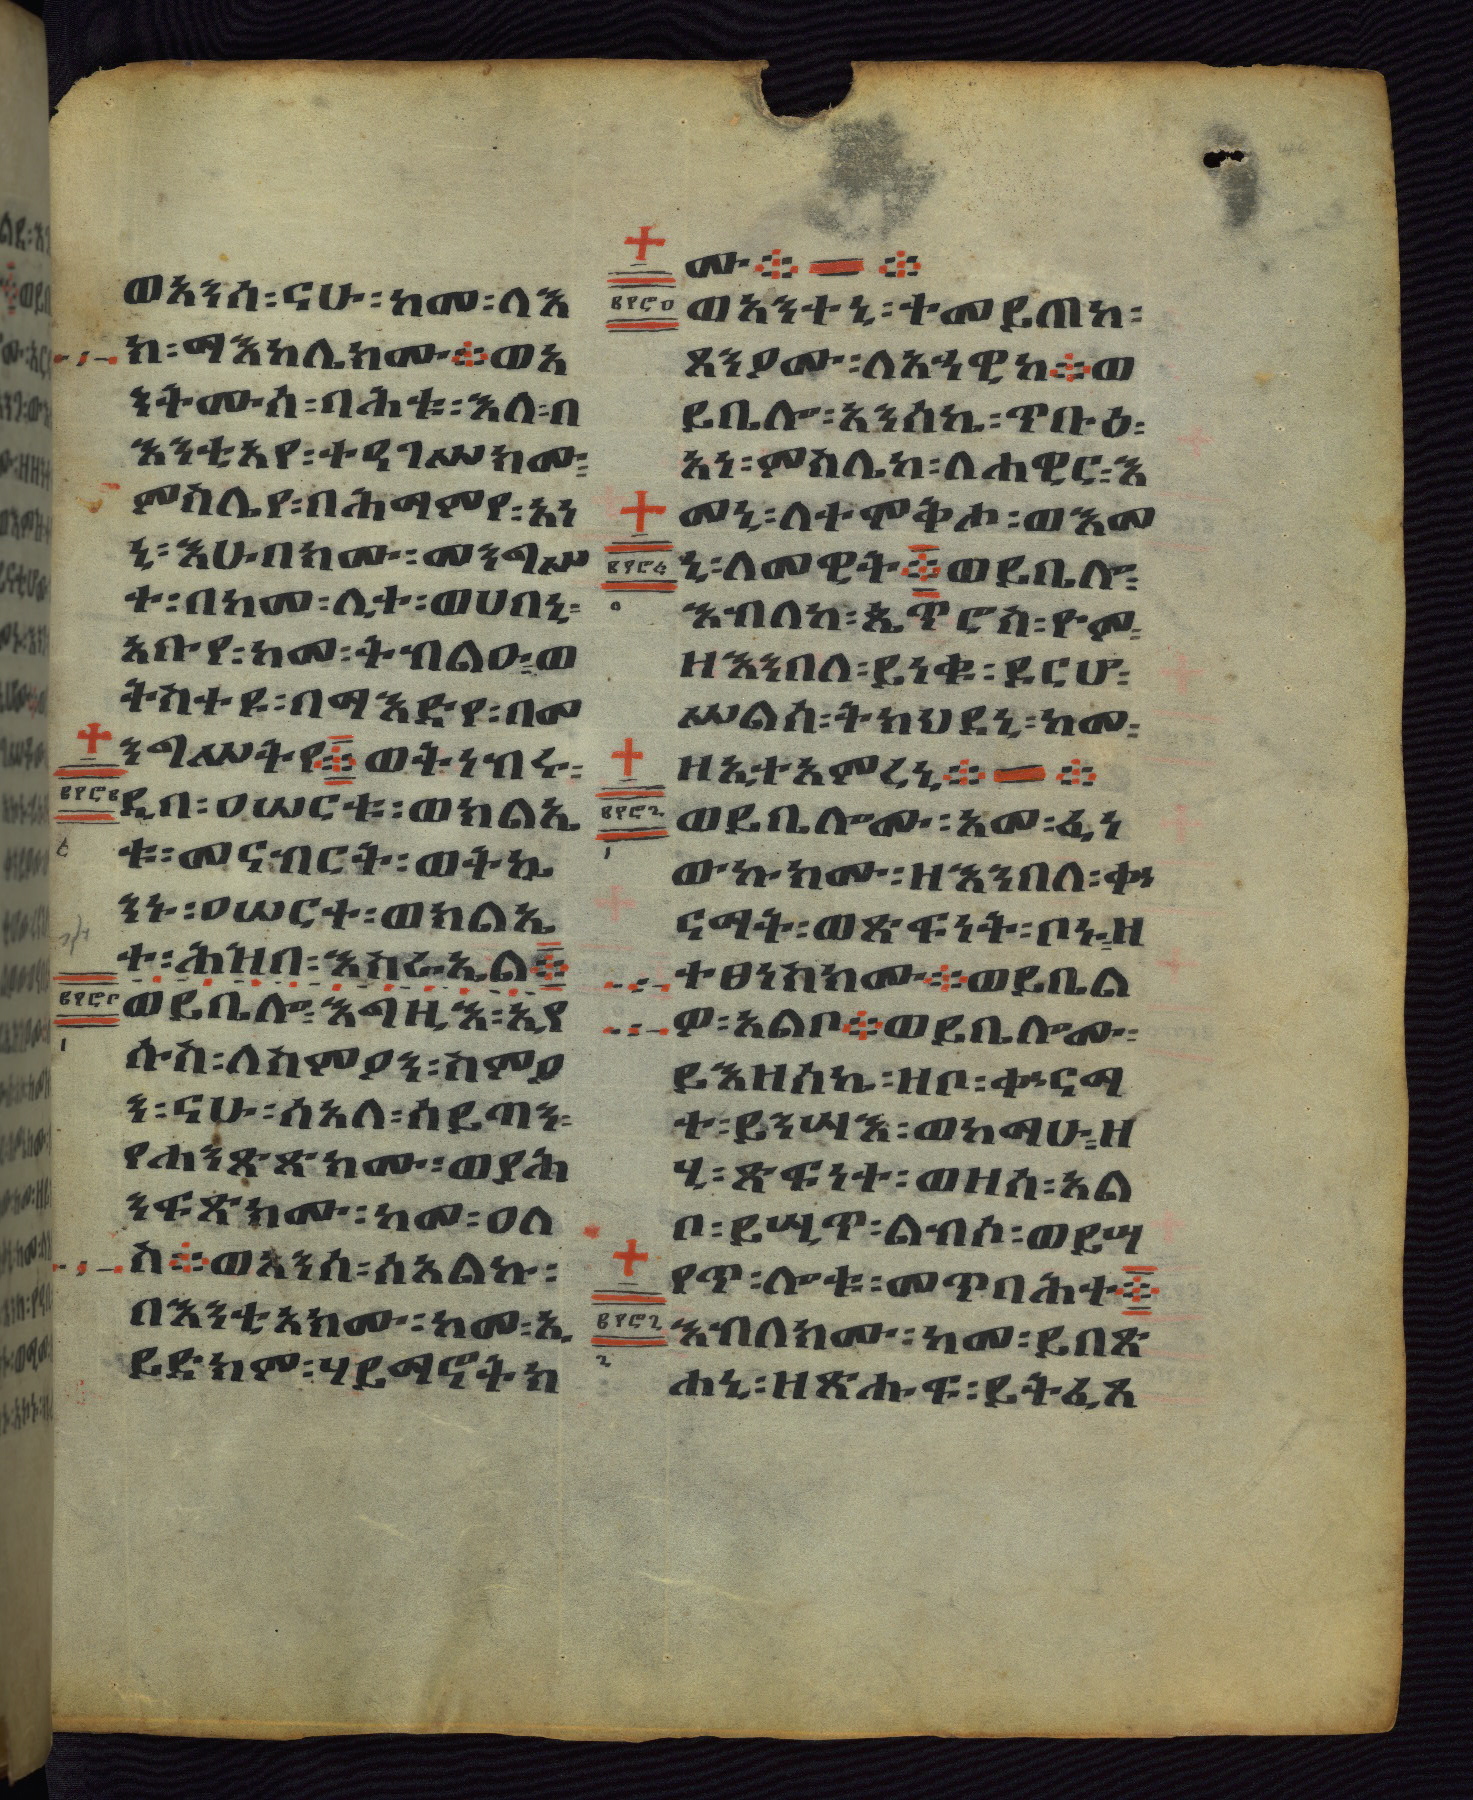 ወአንሰ፡ናሁ፡ከመ፡ላእ
ክ፡ማእከሌክሙ፨ወአ
ንትሙሰ፡ባሕቱ፡እለ፡በ
እንቲአየ፡ተዓገሥክሙ፡
ምስሌየ፡በሕማምየ፡አነ
ኒ፡እሁበክሙ፡መንግሥ
ተ፡በከመ፡ሊተ፡ወሀበኒ፡
አቡየ፡ከመ፡ትብልዑ፡ወ
ትስተዩ፡በማእድየ፡በመ
ንግሥትየ፨ወትነብሩ፡
ዲበ፡ዐሠርቱ፡ወክልኤ
ቱ፡መናብርት፡ወትኴ
ንኑ፡ዐሠርተ፡ወክልኤ
ተ፡ሕዝበ፡እስራኤል፨
፪፻፸፫
ወይቤሎ፡እግዚእ፡ኢየ
ሱስ፡ለስምዖን፡ስምዖ
ን፡ናሁ፡ሰአለ፡ሰይጣን፡
የሐንጽጽክሙ፡ወያሕ
ንፍጽክሙ፡ከመ፡ዐለ
ስ፨ወአንሰ፡ሰአልኩ፡
በእንቲአክሙ፡ከመ፡ኢ
ይድክም፡ሃይማኖትክ
ሙ፨ ፨
ወአንተኒ፡ተመይጠከ፡
ጸንዖሙ፡ለአኀዊከ፨ወ
ይቤሎ፡አንሰኬ፡ጥቡዕ፡
አነ፡ምስሌከ፡ለሐዊር፡እ
መኒ፡ለተሞቅሖ፡ወእመ
ኒ፡ለመዊት፨ወይቤሎ፡
እብለከ፡ጴጥሮስ፡ዮም፡
ዘእንበለ፡ይነቁ፡ዶርሆ፡
ሥልሰ፡ትክህደኒ፡ከመ፡
ዘኢተአምረኒ፨ ፨
ወይቤሎሙ፡አመ፡ፈነ
ውኩክሙ፡ዘእንበለ፡ቍ
ናማት፡ወጽፍነት፡ቦኑ፡ዘ
ተፀነስክሙ፨ወይቤል
ዎ፡አልቦ፨ወይቤሎሙ፡
ይእዘሰኬ፡ዘቦ፡ቍናማ
ተ፡ይንሣእ፡ወከማሁ፡ዘ
ሂ፡ጽፍነተ፡ወዘሰ፡አል
ቦ፡ይሢጥ፡ልብሶ፡ወይሣ
የጥ፡ሎቱ፡መጥባሕተ፨
እብለክሙ፡ከመ፡ይበጽ
ሐኒ፡ዘጽሑፍ፡ይትፌጸ